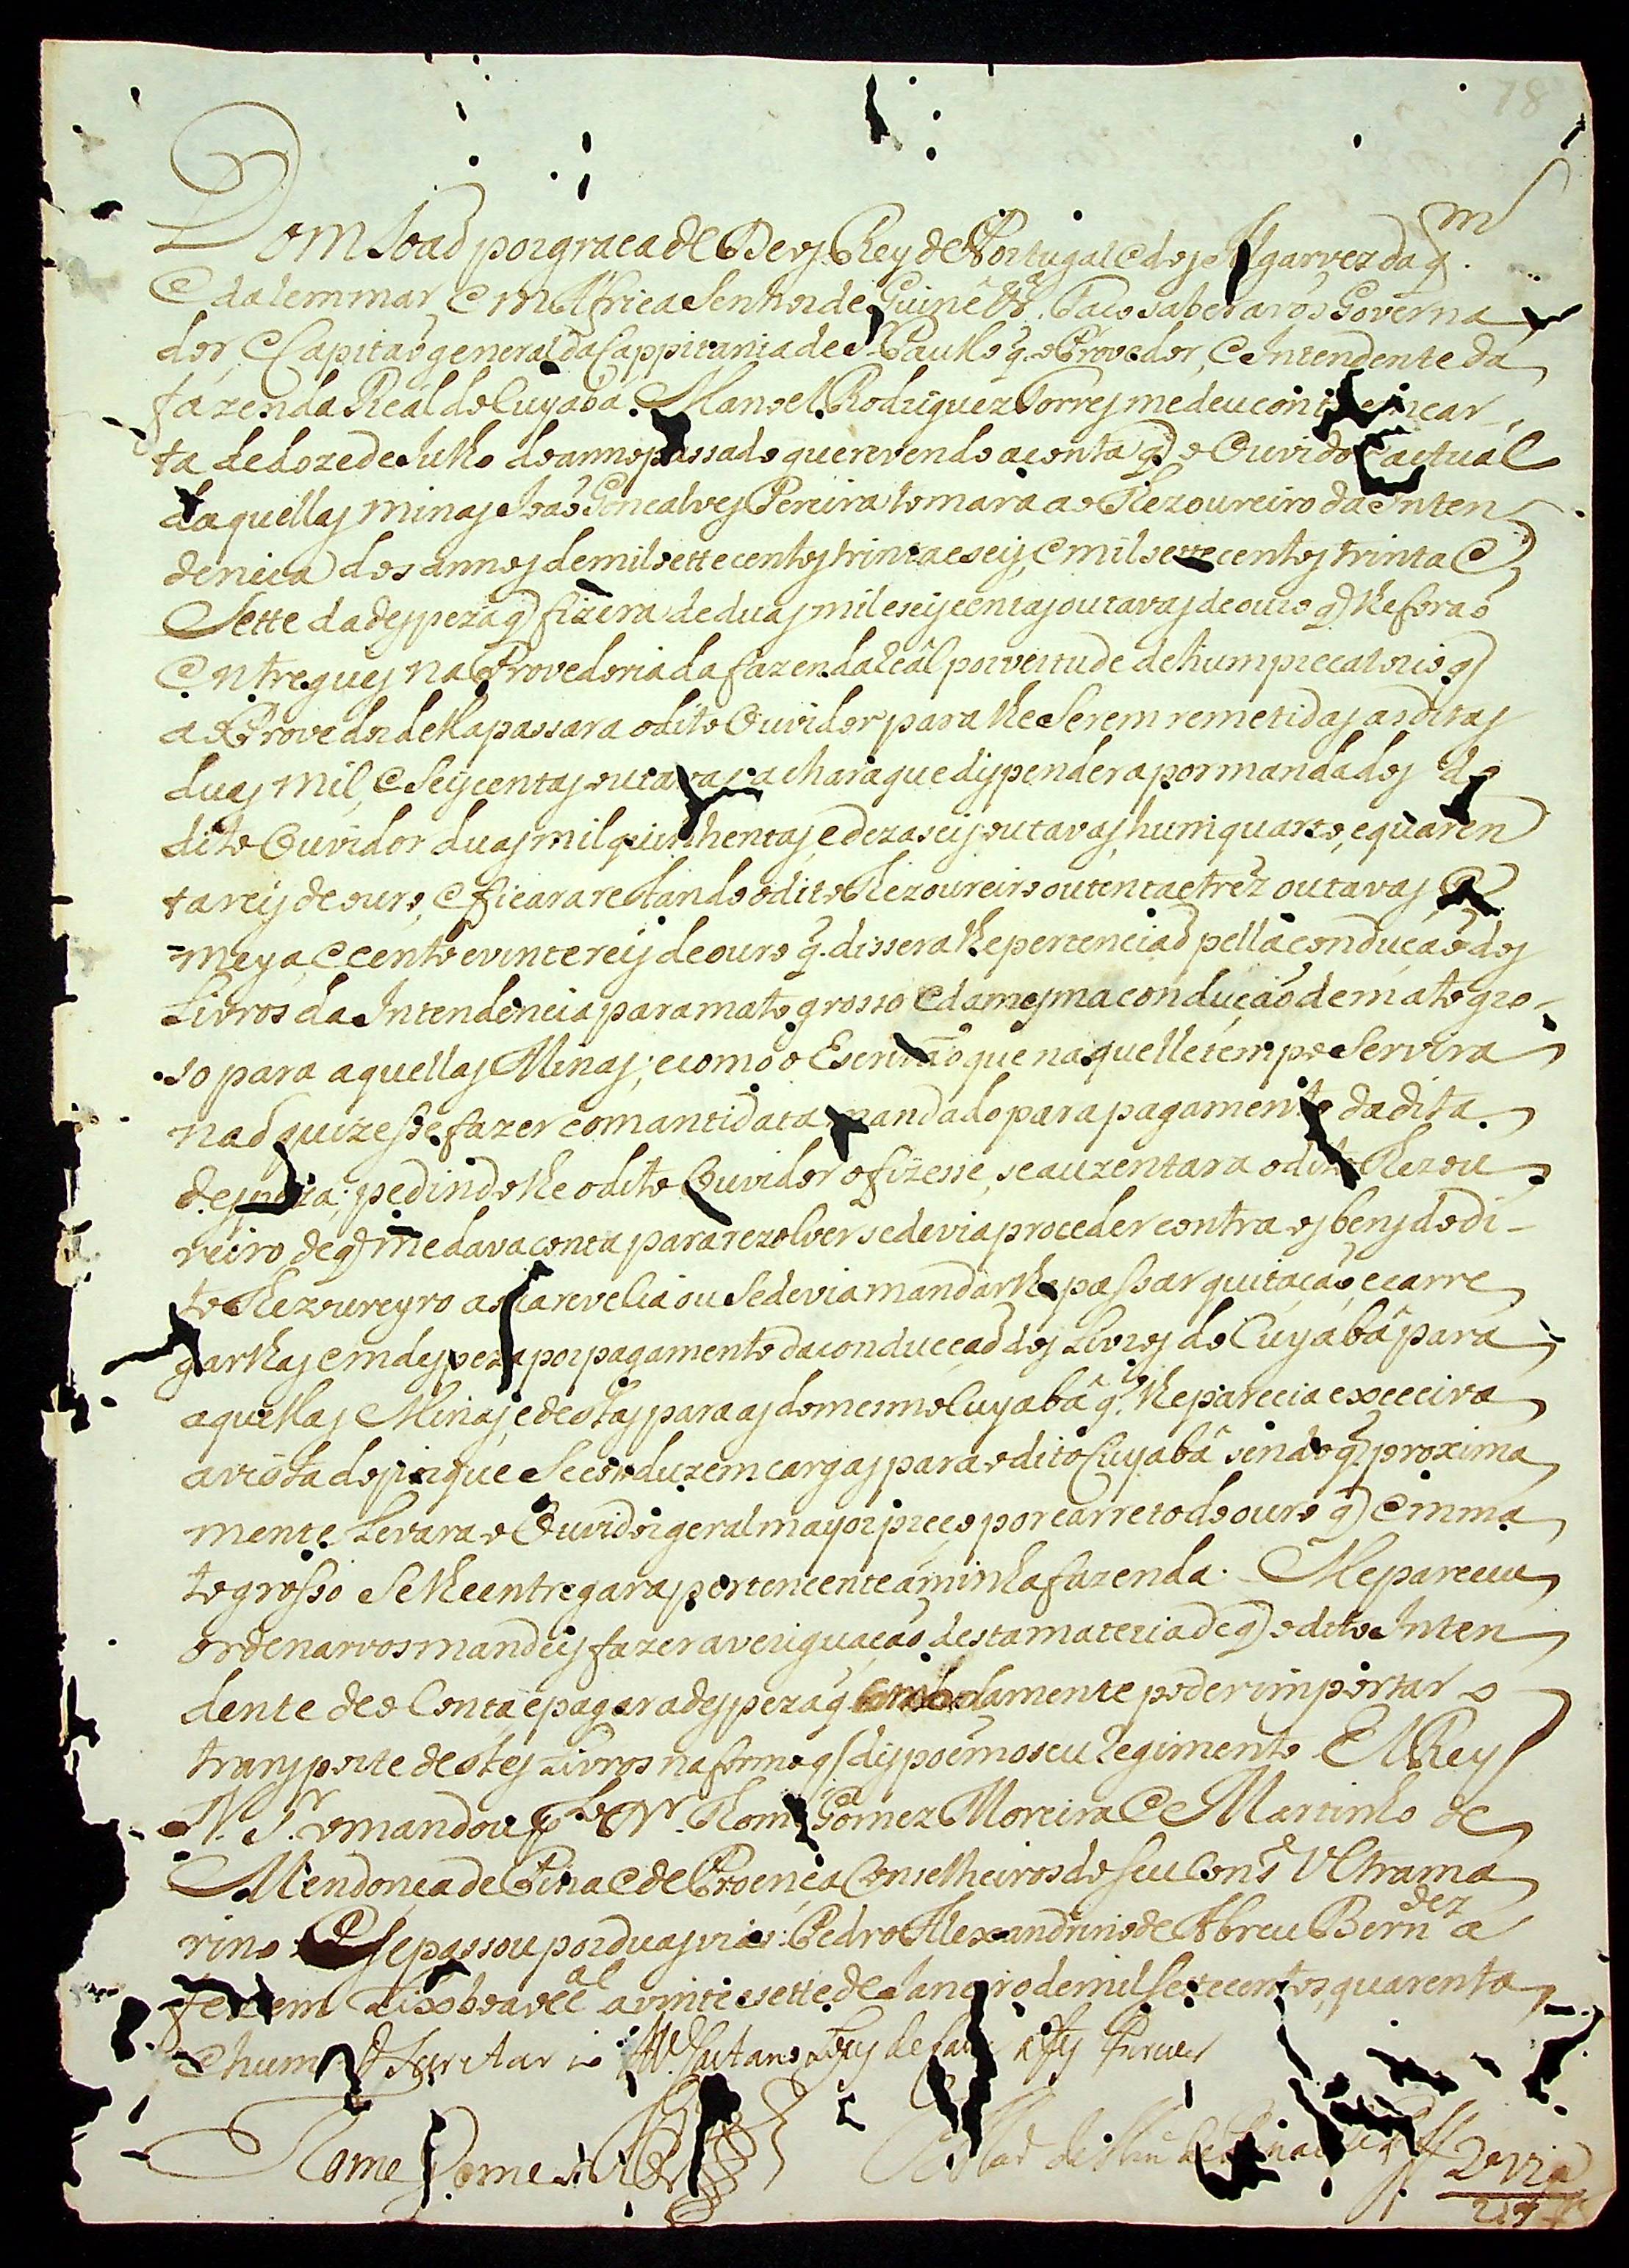 78
Dom Ioaõ por graca de Deos Rey de Portugal e dos Algarves daq.m
e dalem mar em Africa Senhor de Guinê &.ª Faco saber avós Governa
dor, e Capitaõ general da Cappitania de S. Paullo q. o Provedor, e Intendente da
fazenda Real do Cuyabá Manoel Rodriguez Torres me deu conta em car_
ta de doze de Iulho do anno passado que revendo a conta q̃ o Ouvidor actual
daquellas minas Ioaõ Goncalves Pereira tomara ao Thezoureiro da Inten
dencia dos annos de mil sette centos trinta e seis, e mil sette centos trinta e
Sette da despeza q̃ fizera de duas mil e seis centas outavas de ouro q̃ lhe foraõ
entregues na Provedoria da fazenda Real por vertude de hum precatorio q̃
a Provedor della passara o dito Ouvidor para lhe Serem remetidas as ditas
duas mil, e Seis centas outavas achara que dispendera por mandados do
dito Ouvidor duas mil quinhentas, e dezaseis outavas, hum quarto, e quaren
ta reis de ouro, e ficara restando o dito Thezoureiro outenta e trêz outavas, e
meya, e cento e vinte reis de ouro q. dissera lhe pertenciaõ pella conduçaõ dos
Livros da Intendencia para mato grosso e da mesma conduçaõ de mato gro_
so para aquellas Minas; e como o Escrivaõ que naquelle tempo Servira
naõ quizesse fazer com antidata mandado para pagamento da dita
despeza; pedindo lhe o dito Ouvidor o fizesse, se auzentara o dito Thezou
reiro de q̃ me dava conta para rezolver se devia proceder contra os bens do di_
to Thezoureyro a sua revelia ou Se devia mandar lhe passar quitaçaõ, e carre
garlhas em despeza por pagamento da conducçaõ dos Livros do Cuyabâ para
aquellas Minas, e destas para as do mesmo Cuyabâ q. lhe parecia exceciva
a vista do porque Se conduzem cargas para o dito Cuyabâ sendo q̃ proxima
mente Levara o Ouvidor geral mayor preço por carreto do ouro q̃ em ma
to grosso Se lhe entregara pertencente á minha fazenda. Me pareceu
ordenarvos mandeis fazer averiguaçaõ desta materia de q̃ o dito Inten
dente deo Conta, e pagar a despeza q̃ damente poder importar o
transporte destes Livros na forma q̃ dispoem o seu Regimento El Rey
N. S.r o mandou p.lo D.r Thomê Gomez Moreira e Martinho de
Mendonça de Pina e de Proença Conselheiros do seu Cons.º Ultrama
rino e se passou por duas vias. Pedro Alexandrino de Abreu Bern.dez a
fez em Lixboa occ.al a vinte e sette de Ianeiro de mil settecentos, quarenta
e hum. O Secretario M.el Caetano Lopes de
Tome Gome
2.ª via